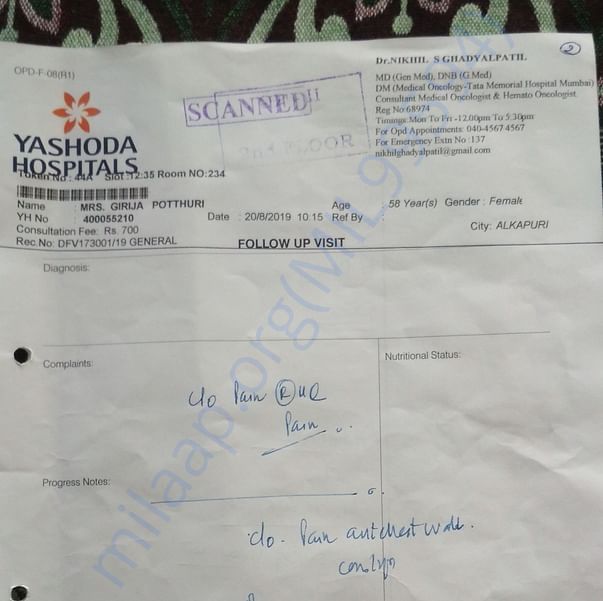 OPD-F-08(R1)
2
SCANNED
II
2nd FLOOR
Dr.NIKHIL S GHADYALPATIL
MD (Gen Med), DNB (G Med)
DM (Medical Oncology-Tata Memorial Hospital Mumbai)
Consultant Medical Oncologist & Hemato Oncologist
Reg No:68974
Timings:Mon To Fri -12.00pm To 5:30pm
For Opd Appointments: 040-4567 4567
For Emergency Extn No :137
nikhilghadyalpatil@gmail.com
YASHODA
HOSPITALS
Token No : 44A Slot :12:35 Room NO:234
Name : MRS. GIRIJA POTTHURI Age : 58 Year(s) Gender : Female
YH No : 400055210 Date : 20/8/2019 10:15 Ref By :
Consultation Fee: Rs. 700 City: ALKAPURI
Rec.No: DFV173001/19 GENERAL
FOLLOW UP VISIT
Diagnosis:
Complaints: Nutritional Status:
c/o Pain (R) UL
Pain
Progress Notes:
c/o. Pain ant chest wall.
milaap.org(MIL99394)